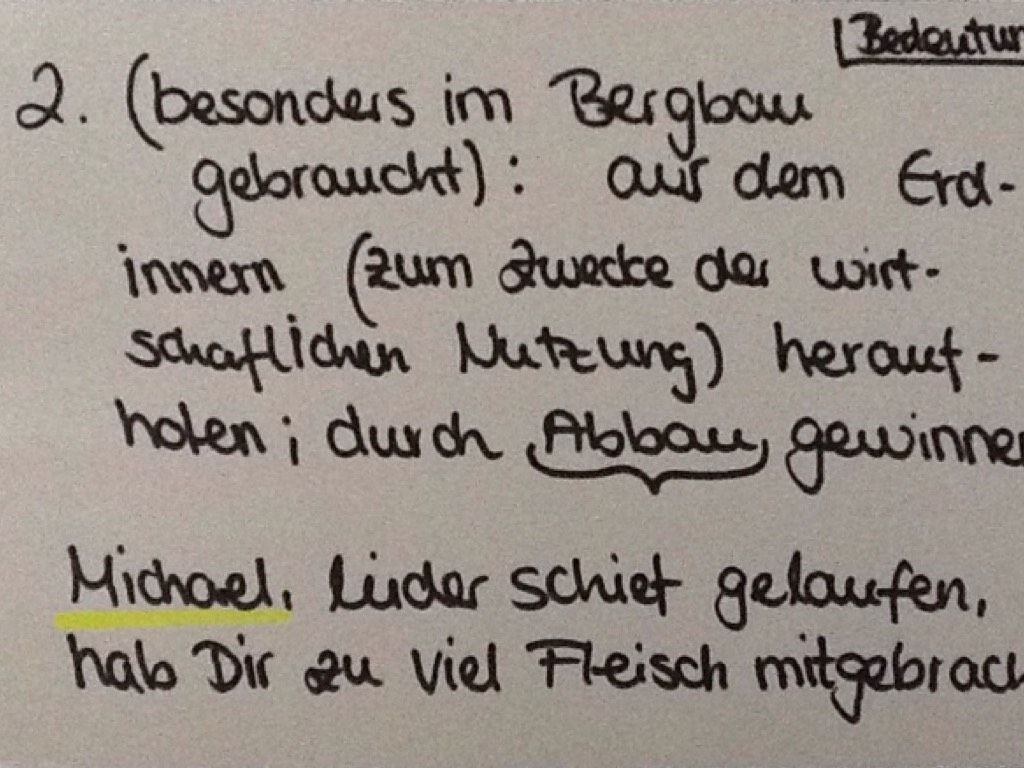 Bedeutun
2. (besonders im Bergbau
gebraucht): aus dem Erd-
innern (zum Zwecke der wirt-
schaftlichen Nutzung) herauf-
holen; durch Abbau gewinnen
Michael, leider schief gelaufen,
hab Dir zu viel Fleisch mitgebrach